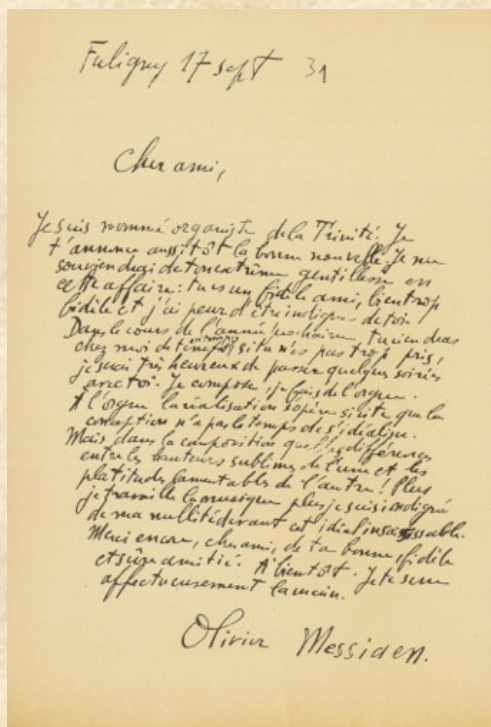 Fuligny 17 sept 31
Cher ami,
Je suis nommé organiste de la Trinité. Je
t'annonce aussitôt la bonne nouvelle. Je me
souviendrai de ton extrême gentillesse en
cette affaire: tu es un fidèle ami, bien trop
fidèle et j'ai peur d'être indigne de toi.
Dans le cours de l'année prochaine, tu viendras
chez moi de temps en temps, si tu n'es pas trop pris,
je serai très heureux de passer quelques soirées
avec toi. Je compose, je fais de l'orgue.
A l'orgue la réalisation s'opère si vite que la
conception n'a pas le temps de s'idéaliser.
Mais dans la composition quelles différences
entre les hauteurs sublimes de l'une et les
platitudes lamentables de l'autre! Plus
je travaille la musique plus je suis indigné
de ma nullité devant cet idéal insaisissable.
Merci encore, cher ami, de ta bonne, fidèle
et sûre amitié. A bientôt. Je te serre
affectueusement la main.
Olivier Messiaen.